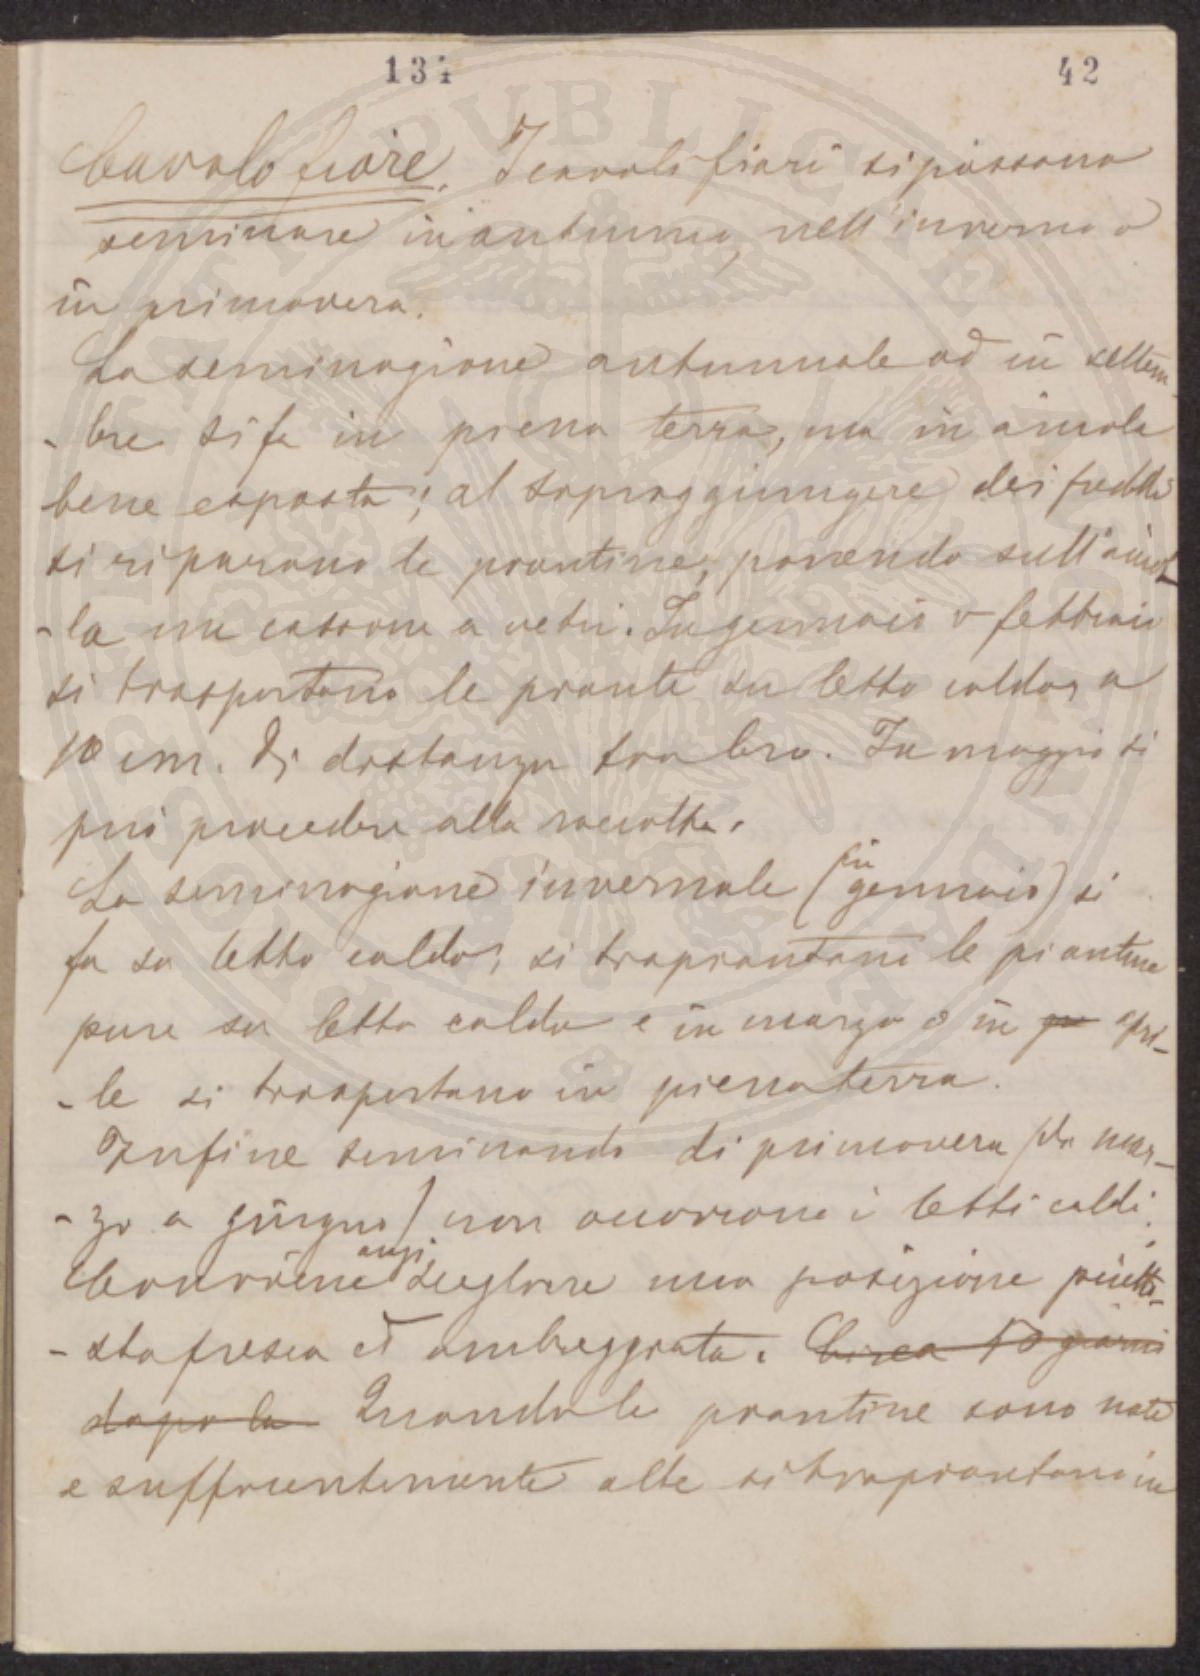 134 42
Cavolo fiore. I cavoli fiori si possono
seminare in autunno, nell'inverno o
in primavera.
La seminagione autunnale od in settem-
-bre si fa in piena terra, ma in aiuola
bene esposta; al sopraggiungere dei freddi
si riparano le piantine, ponendo sull'aiuo-
-la un cassone a vetri. In gennaio o febbraio
si trasportano le piante su letto caldo, a
10 cm. di distanza tra loro. In maggio si
può procedere alla raccolta.
La seminagione invernale (in gennaio) si
fa su letto caldo; si trapiantano le piantine
pure su letto caldo e in marzo o in apri-
-le si trasportano in piena terra.
Infine seminando di primavera (da mar-
-zo a giugno) non occorrono i letti caldi;
Conviene anzi scegliere una posizione piutto-
-sto fresca ed ombreggiata. Circa 10 giorni
dopo la Quando le piantine sono nate
e sufficientemente alte si trapiantano in